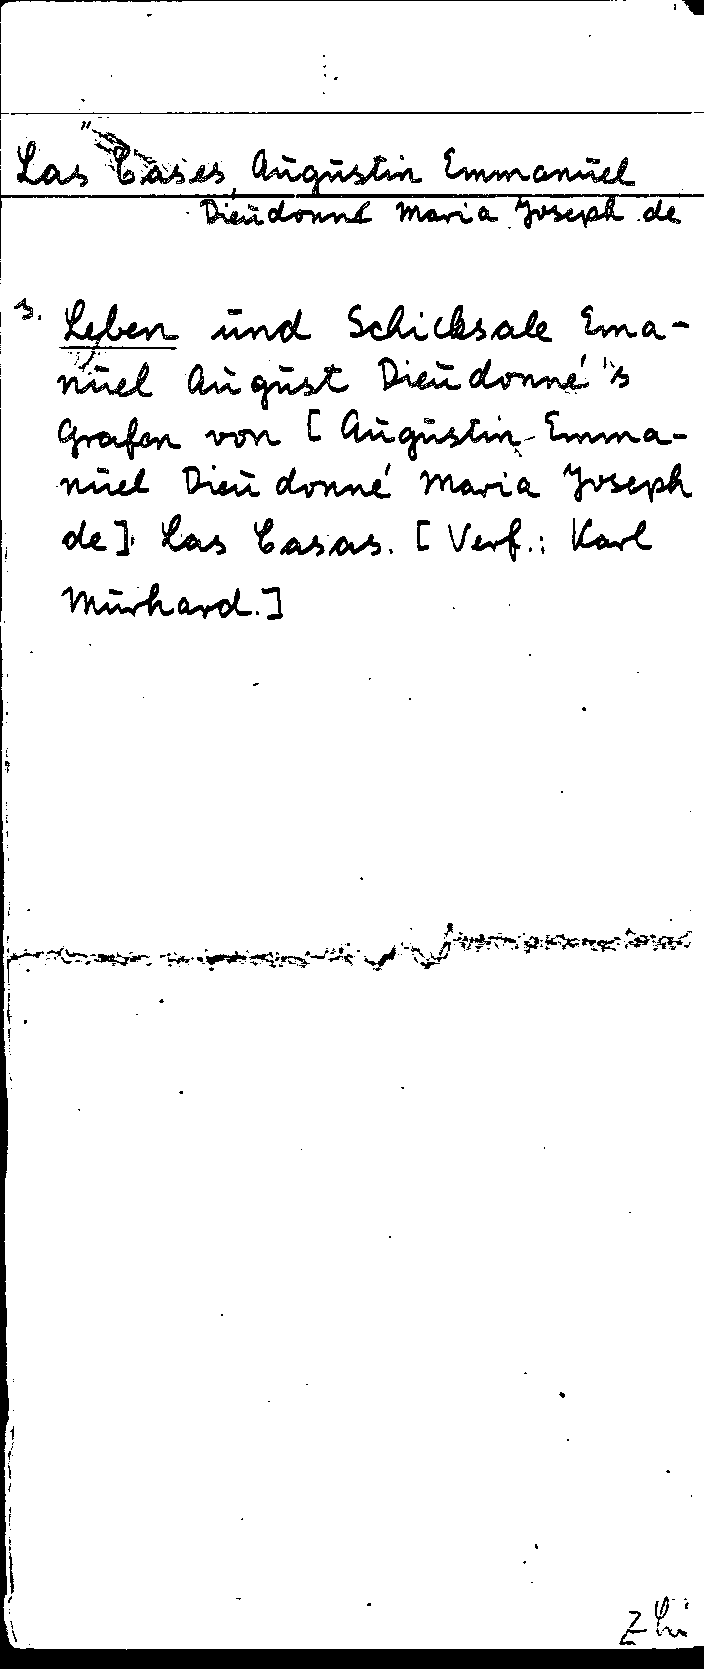 Las Cases, Augustin Emmanuel
Dieudonné Maria Joseph de
s. Leben und Schicksale Ema-
nuel August Dieudonné's
Grafen von [Augustin Emma-
nuel Dieudonné Maria Joseph
de] Las Casas. [Verf.: Karl
Murhard.]